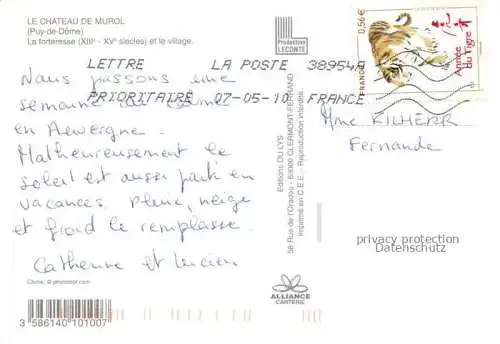 LE CHATEAU DE MUROL
(Puy-de-Dôme)
La forteresse (XIIIᵉ - XVᵉ siècles) et le village.
Production
LECONTE
0,56 €
FRANCE
Année
du Tigre
LETTRE
PRIORITAIRE
LA POSTE 38954A
07-05-10 FRANCE
Nous passons une
semaine de
en Auvergne.
Malheureusement le
soleil est aussi parti en
vacances. Pluie, neige
et froid le remplasse.
Catherine et Lucien
Mme KILHERR
Fernande
Editions DU LYS
58 Rue de l'Oradou - 63000 CLERMONT-FERRAND
Imprimé en C.E.E. - Reproduction interdite
privacy protection
Datenschutz
ALLIANCE
CARTERIE
3 586140 101007